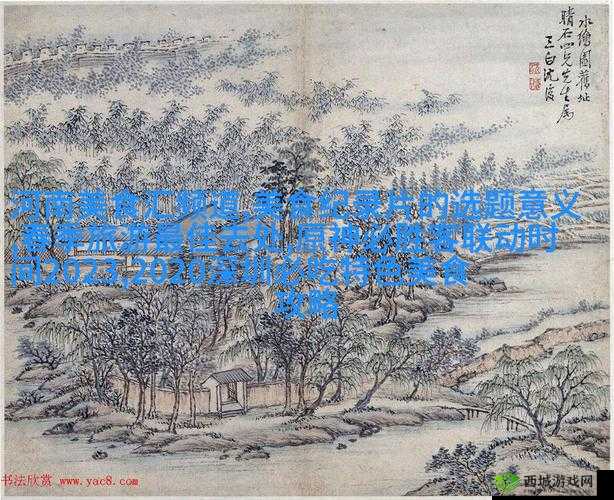 水繪園舊址
晴石四兄先生属
三白沈復
河南美食汇频道,美食纪录片的选题意义
春季旅游最佳去处,原神必胜客联动时
间2023,2020深圳必吃特色美食
攻略
书法欣赏 www.yac8.com
西城游戏网